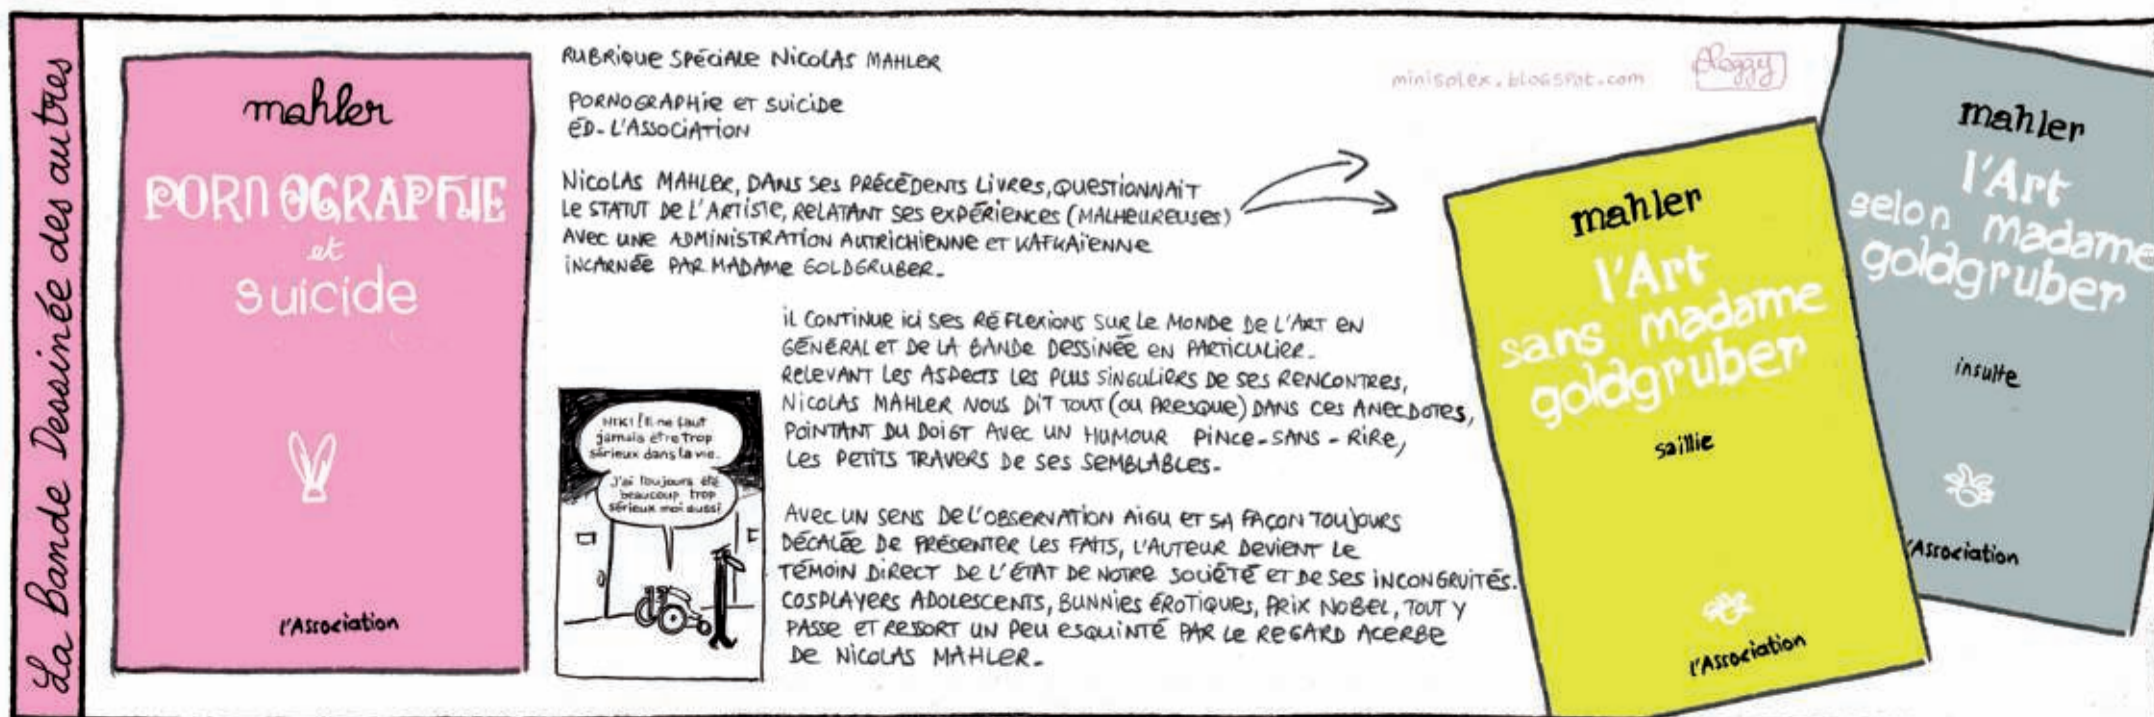 La Bande Dessinée des autres
mahler
PORNOGRAPHIE
et
suicide
l'Association
RUBRIQUE SPÉCIALE NICOLAS MAHLER
PORNOGRAPHIE ET SUICIDE
ÉD. L'ASSOCIATION
NICOLAS MAHLER, DANS SES PRÉCÉDENTS LIVRES, QUESTIONNAIT
LE STATUT DE L'ARTISTE, RELATANT SES EXPÉRIENCES (MALHEUREUSES)
AVEC UNE ADMINISTRATION AUTRICHIENNE ET KAFKAÏENNE
INCARNÉE PAR MADAME GOLDGRUBER.
IL CONTINUE ICI SES RÉFLEXIONS SUR LE MONDE DE L'ART EN
GÉNÉRAL ET DE LA BANDE DESSINÉE EN PARTICULIER.
RELEVANT LES ASPECTS LES PLUS SINGULIERS DE SES RENCONTRES,
NICOLAS MAHLER NOUS DIT TOUT (OU PRESQUE) DANS CES ANECDOTES,
POINTANT DU DOIGT AVEC UN HUMOUR PINCE-SANS-RIRE,
LES PETITS TRAVERS DE SES SEMBLABLES.
NIKI! Il ne faut
jamais être trop
sérieux dans la vie.
J'ai toujours été
beaucoup trop
sérieux moi aussi
AVEC UN SENS DE L'OBSERVATION AIGU ET SA FAÇON TOUJOURS
DÉCALÉE DE PRÉSENTER LES FAITS, L'AUTEUR DEVIENT LE
TÉMOIN DIRECT DE L'ÉTAT DE NOTRE SOCIÉTÉ ET DE SES INCONGRUITÉS.
COSPLAYERS ADOLESCENTS, BUNNIES ÉROTIQUES, PRIX NOBEL, TOUT Y
PASSE ET RESSORT UN PEU ESQUINTÉ PAR LE REGARD ACERBE
DE NICOLAS MAHLER.
minisplex.blogspot.com
mahler
l'Art
sans madame
goldgruber
saillie
l'Association
mahler
l'Art
selon madame
goldgruber
insulte
l'Association